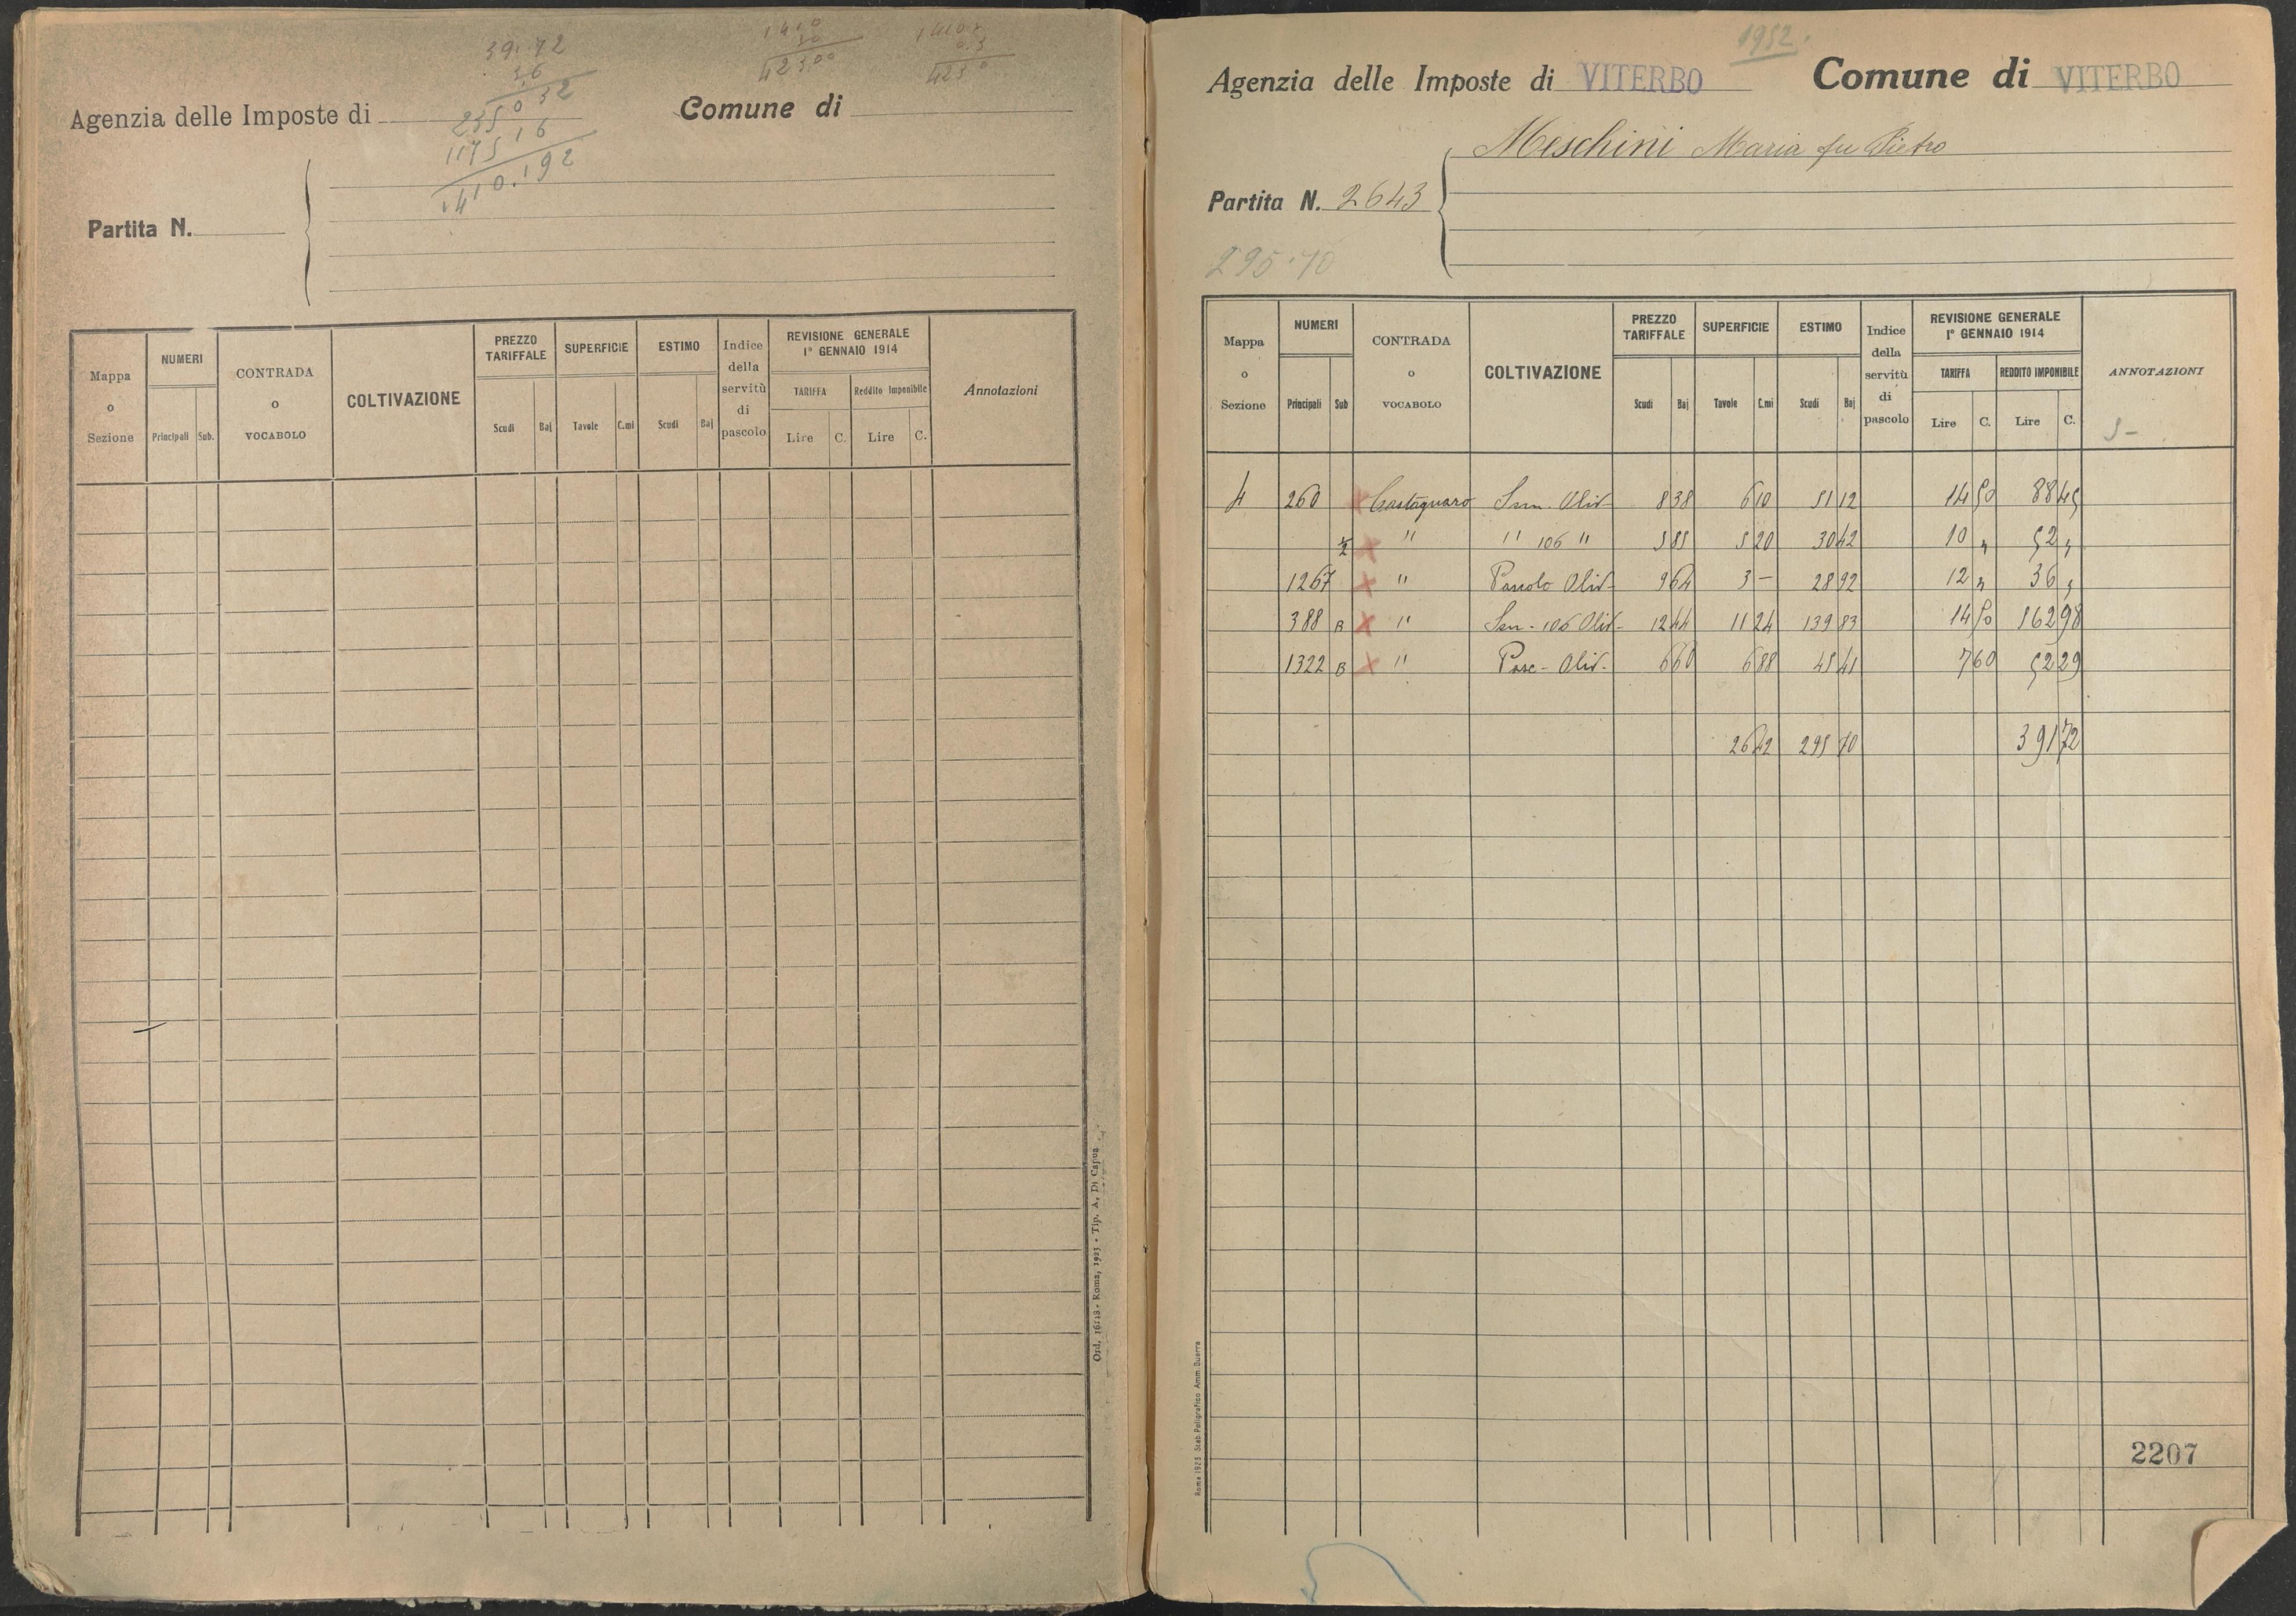 39.72
36
235032
117516
1410.192
1410
30
42300
423
Agenzia delle Imposte di
Comune di
Partita N.
Mappa o Sezione
NUMERI
Principali Sub.
CONTRADA o VOCABOLO
COLTIVAZIONE
PREZZO TARIFFALE
Scudi Baj
SUPERFICIE
Tavole C.mi
ESTIMO
Scudi Baj
Indice della servitù di pascolo
REVISIONE GENERALE
1° GENNAIO 1914
TARIFFA
Lire C.
Reddito Imponibile
Lire C.
Annotazioni
Ord. 16128 - Roma, 1923 - Tip. A. Di Capua
1952.
Agenzia delle Imposte di VITERBO Comune di VITERBO
Meschini Maria fu Pietro
Partita N. 2643
295.70
Mappa o Sezione
NUMERI
Principali Sub
CONTRADA o VOCABOLO
COLTIVAZIONE
PREZZO TARIFFALE
Scudi Baj
SUPERFICIE
Tavole C.mi
ESTIMO
Scudi Baj
Indice della servitù di pascolo
REVISIONE GENERALE
1° GENNAIO 1914
TARIFFA
Lire C.
REDDITO IMPONIBILE
Lire C.
ANNOTAZIONI
4 260 x Castagnaro Sem. Oliv- 8 38 6 10 51 12 14 50 88 45
1/2 x " " 106 " 5 85 5 20 30 42 10 " 52 "
1267 x " Pascolo Oliv- 9 64 3 — 28 92 12 " 36 "
388 B x " Sem - 106 Oliv- 12 44 11 24 139 83 14 50 162 98
1322 B x " Pasc - Oliv- 6 60 6 88 45 41 7 60 52 29
26 42 295 70 391 72
2207
Roma 1925 Stab. Poligrafico Amm. Guerra